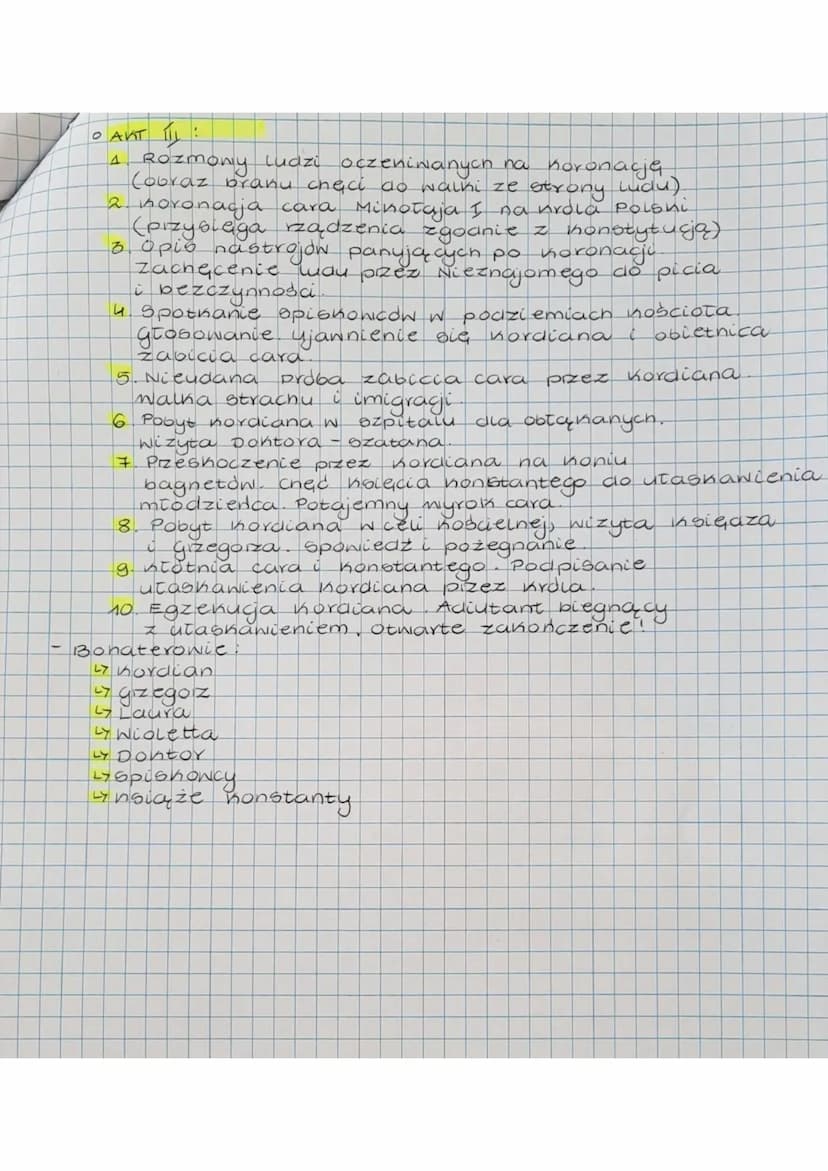 ○ AKT III :
1. Rozmowy ludzi oczekiwanych na koronację
(obraz braku chęci do walki ze strony ludu)
2. Koronacja cara Mikołaja I na króla Polski
(przysięga rządzenia zgodnie z konstytucją)
3. Opis nastrojów panujących po koronacji.
Zachęcenie ludu przez Nieznajomego do picia
i bezczynności.
4. Spotkanie spiskowców w podziemiach kościoła.
Głosowanie. Ujawnienie się Kordiana i obietnica
zabicia cara.
5. Nieudana próba zabicia cara przez Kordiana.
Walka strachu i imigracji.
6. Pobyt Kordiana w szpitalu dla obłąkanych.
Wizyta Doktora - szatana.
7. Przeskoczenie przez Kordiana na koniu
bagnetów. Chęć księcia Konstantego do ułaskawienia
młodzieńca. Potajemny wyrok cara.
8. Pobyt Kordiana w celi kościelnej, wizyta księdza
i Grzegorza. Spowiedź i pożegnanie.
9. Kłótnia cara i Konstantego. Podpisanie
ułaskawienia Kordiana przez króla.
10. Egzekucja Kordiana. Adiutant biegnący
z ułaskawieniem, otwarte zakończenie!
- Bohaterowie:
↳ Kordian
↳ Grzegorz
↳ Laura
↳ Wioletta
↳ Doktor
↳ spiskowcy
↳ książe Konstanty